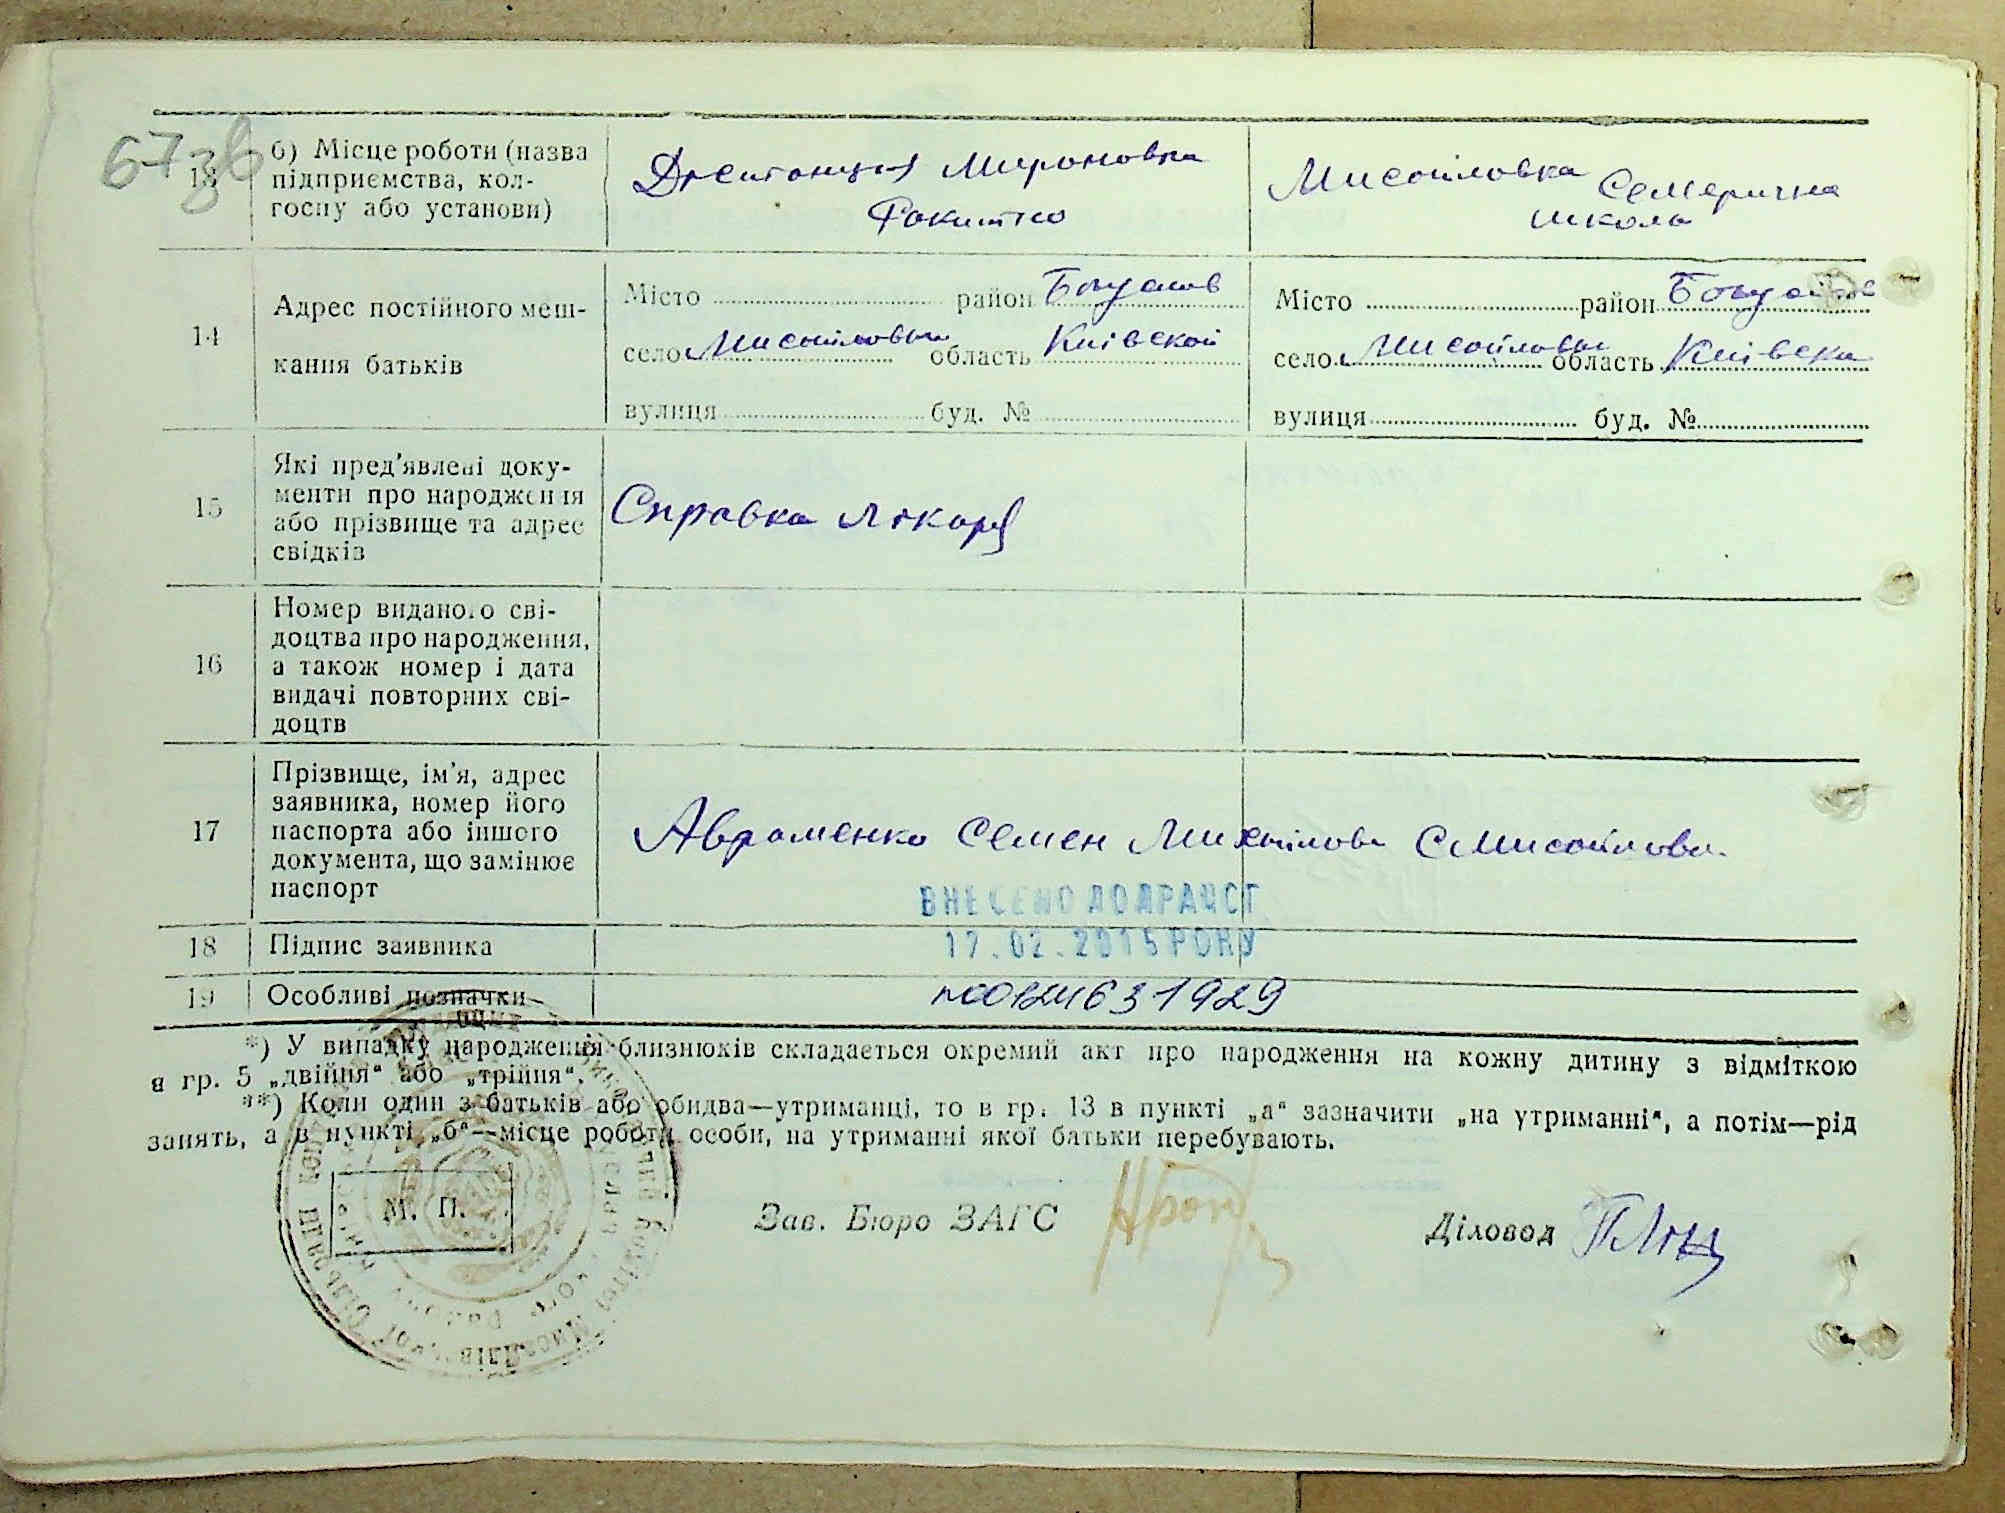 67зв
13
б) Місце роботи (назва
підприємства, кол-
госпу або установи)
Мироновка
Рокитно
Мисайловка Семерична
школа
14
Адрес постійного меш-
кання батьків
Місто район Богуслав
село Мисайловка область Киівской
вулиця буд. №
Місто район Богуслав
село Мисайловка область Киівска
вулиця буд. №
15
Які пред'явлені доку-
менти про народження
або прізвище та адрес
свідків
Справка лікаря
16
Номер виданого сві-
доцтва про народження,
а також номер і дата
видачі повторних сві-
доцтв
17
Прізвище, ім'я, адрес
заявника, номер його
паспорта або іншого
документа, що замінює
паспорт
Авраменко Семен Михайлови С Мисайловка
ВНЕСЕНО ДО ДРАЦСГ
17.02.2015 РОКУ
18
Підпис заявника
19
Особливі позначки
*) У випадку народження близнюків складається окремий акт про народження на кожну дитину з відміткою
в гр. 5 „двійня“ або „трійня“.
**) Коли один з батьків або обидва—утриманці, то в гр. 13 в пункті „а“ зазначити „на утриманні“, а потім—рід
занять, а в пункті „б“—місце роботи особи, на утриманні якої батьки перебувають.
М. П.
Зав. Бюро ЗАГС
Діловод